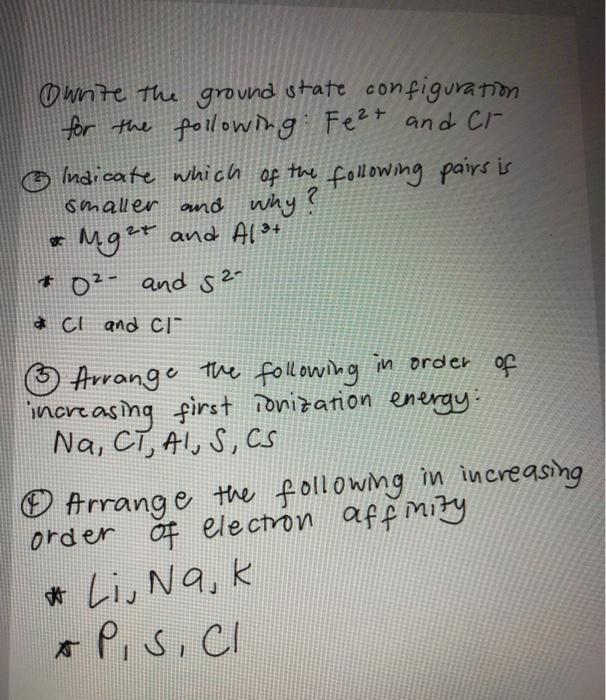 ① Write the ground state configuration
for the following: Fe²⁺ and Cl⁻
② Indicate which of the following pairs is
smaller and why?
* Mg²⁺ and Al³⁺
* O²⁻ and S²⁻
* Cl and Cl⁻
③ Arrange the following in order of
increasing first ionization energy:
Na, Cl, Al, S, Cs
④ Arrange the following in increasing
order of electron affinity
* Li, Na, K
* P, S, Cl